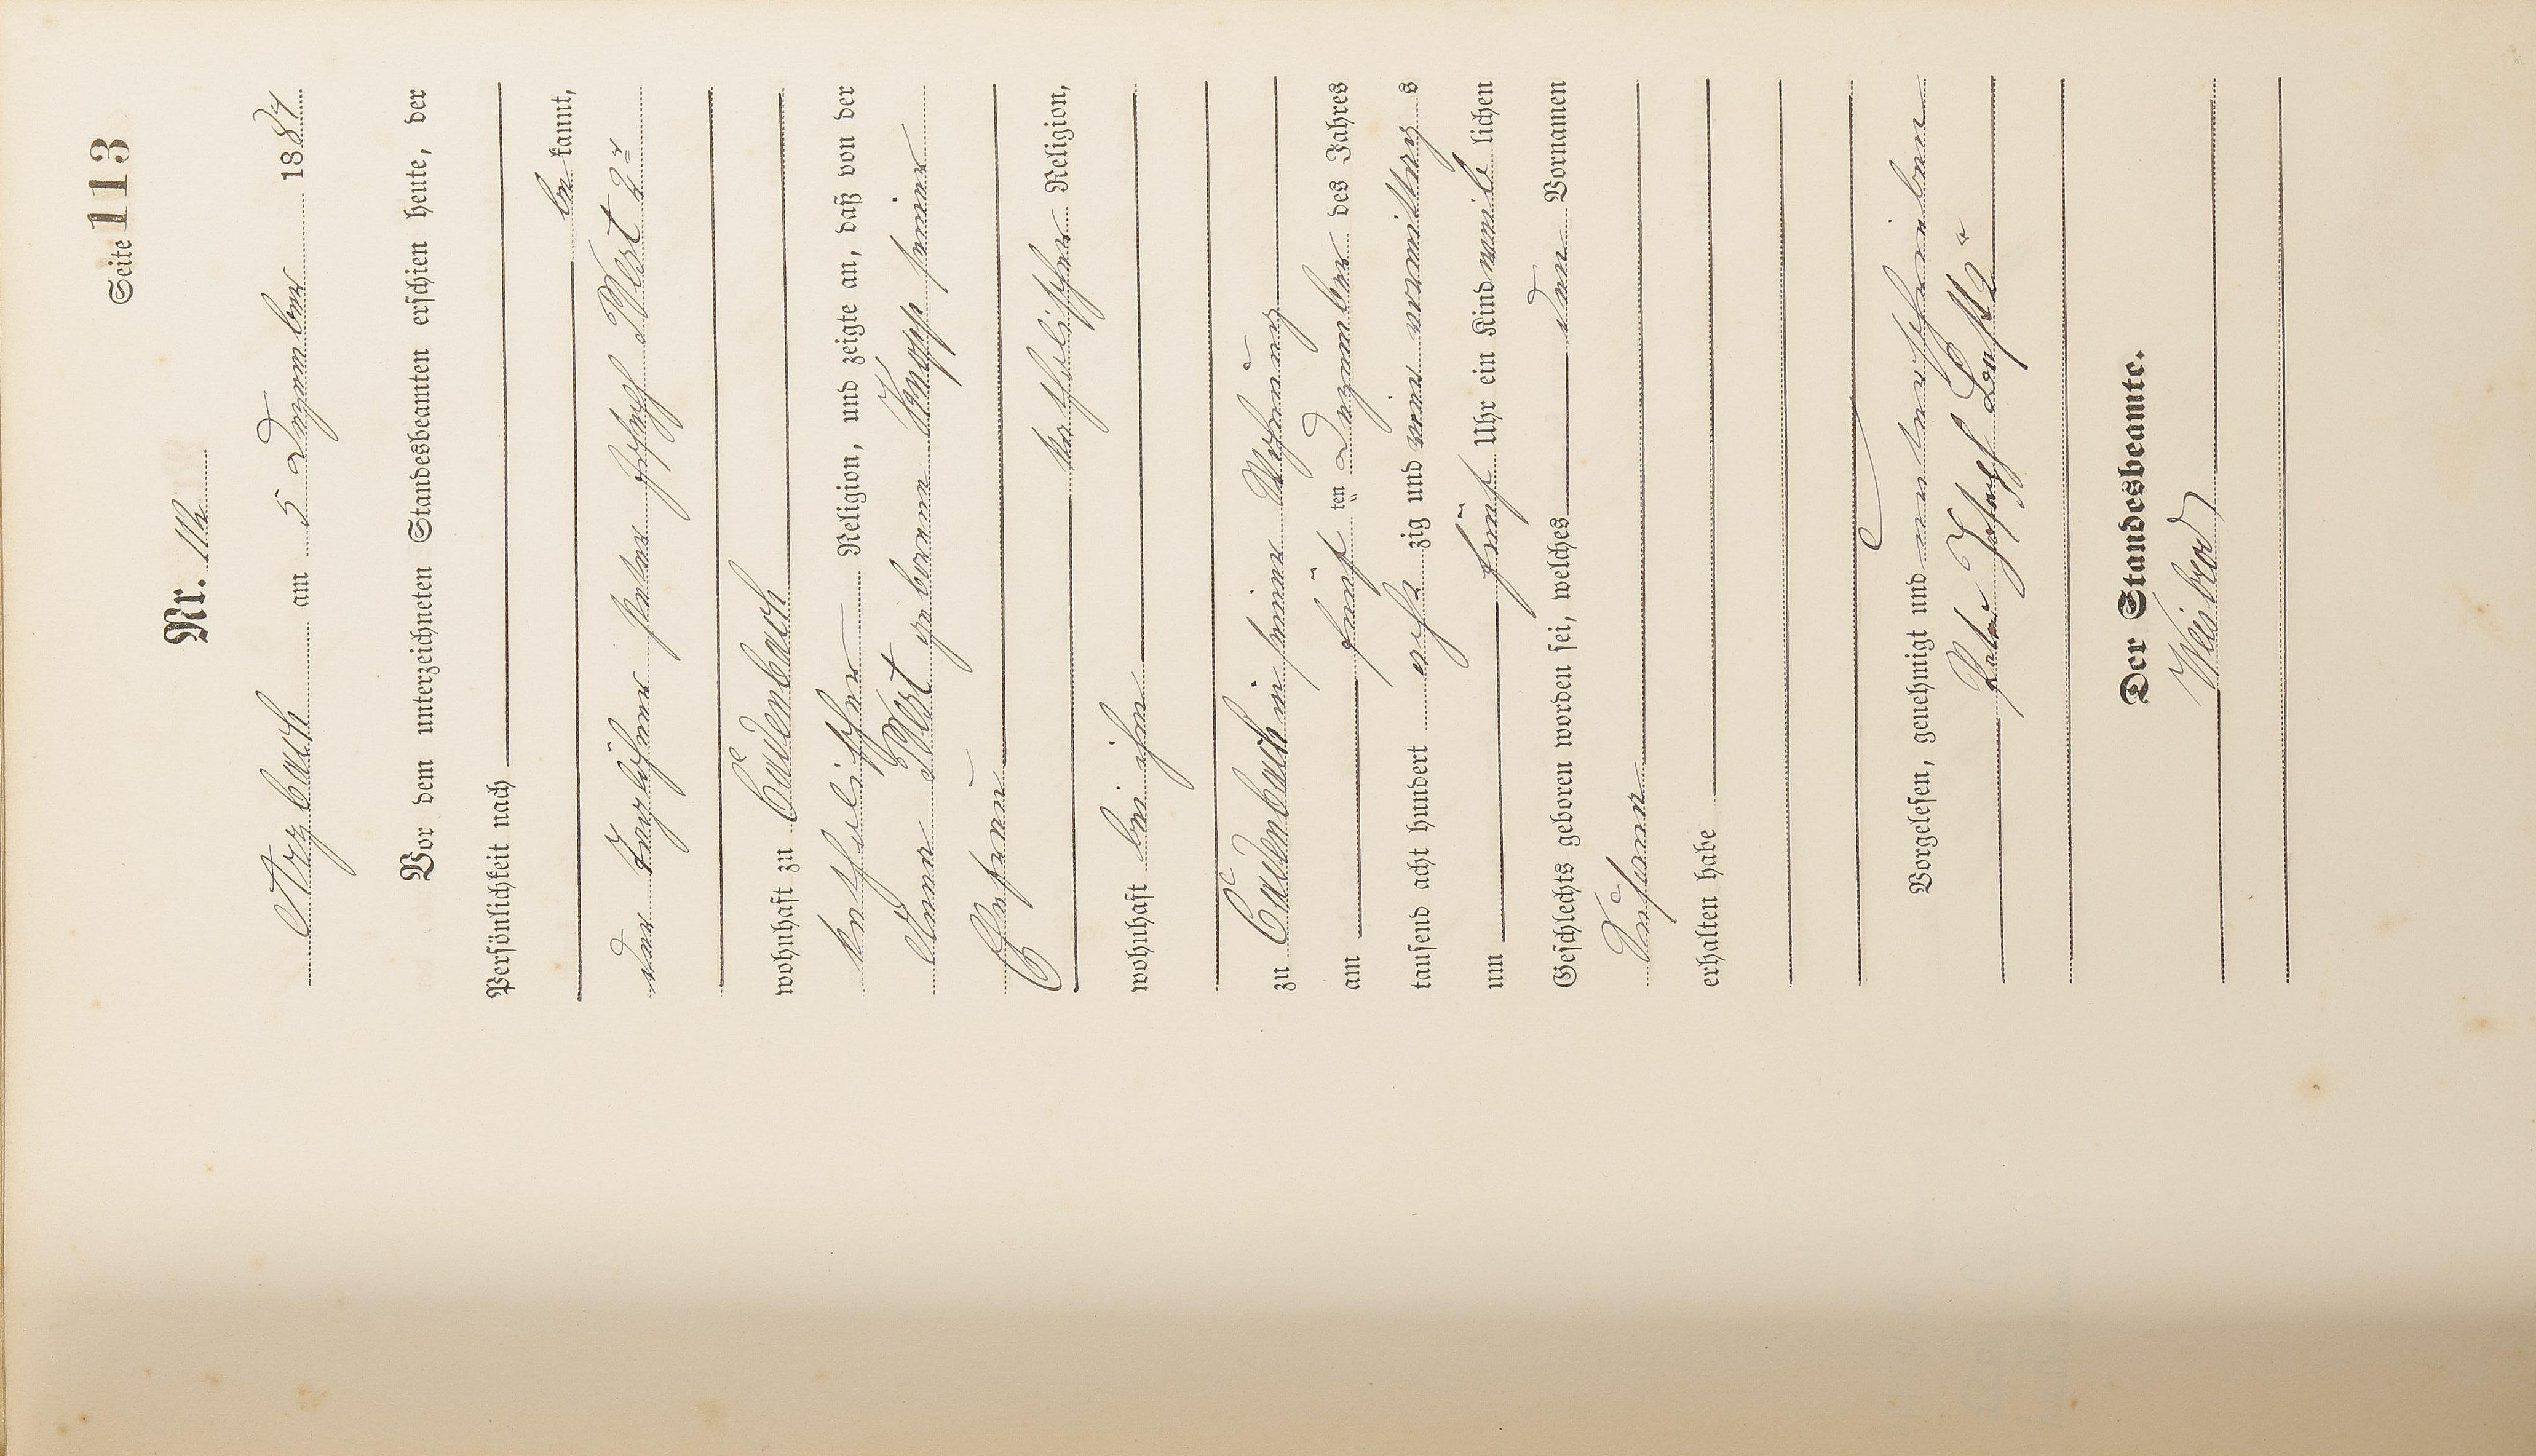 Seite 113
Nr.
Arzbach am 5 Dezember 1884
Vor dem unterzeichneten Standesbeamten erschien heute, der
Persönlichkeit nach
be kannt,
der Taglöhner Peter Joseph
wohnhaft zu Cadenbach
katholischer Religion, und zeigte an, daß von der
Anna geborene Knopp seiner
Ehefrau
katholischer Religion,
wohnhaft bei ihm
zu Cadenbach in seiner Wohnung
am fünf ten Dezember des Jahres
tausend acht hundert acht zig und vier vormittag s
um fünf Uhr ein Kind weib lichen
Geschlechts geboren worden sei, welches den Vornamen
erhalten habe
Vorgelesen, genehmigt und unterschrieben
Peter Joseph
Der Standesbeamte.